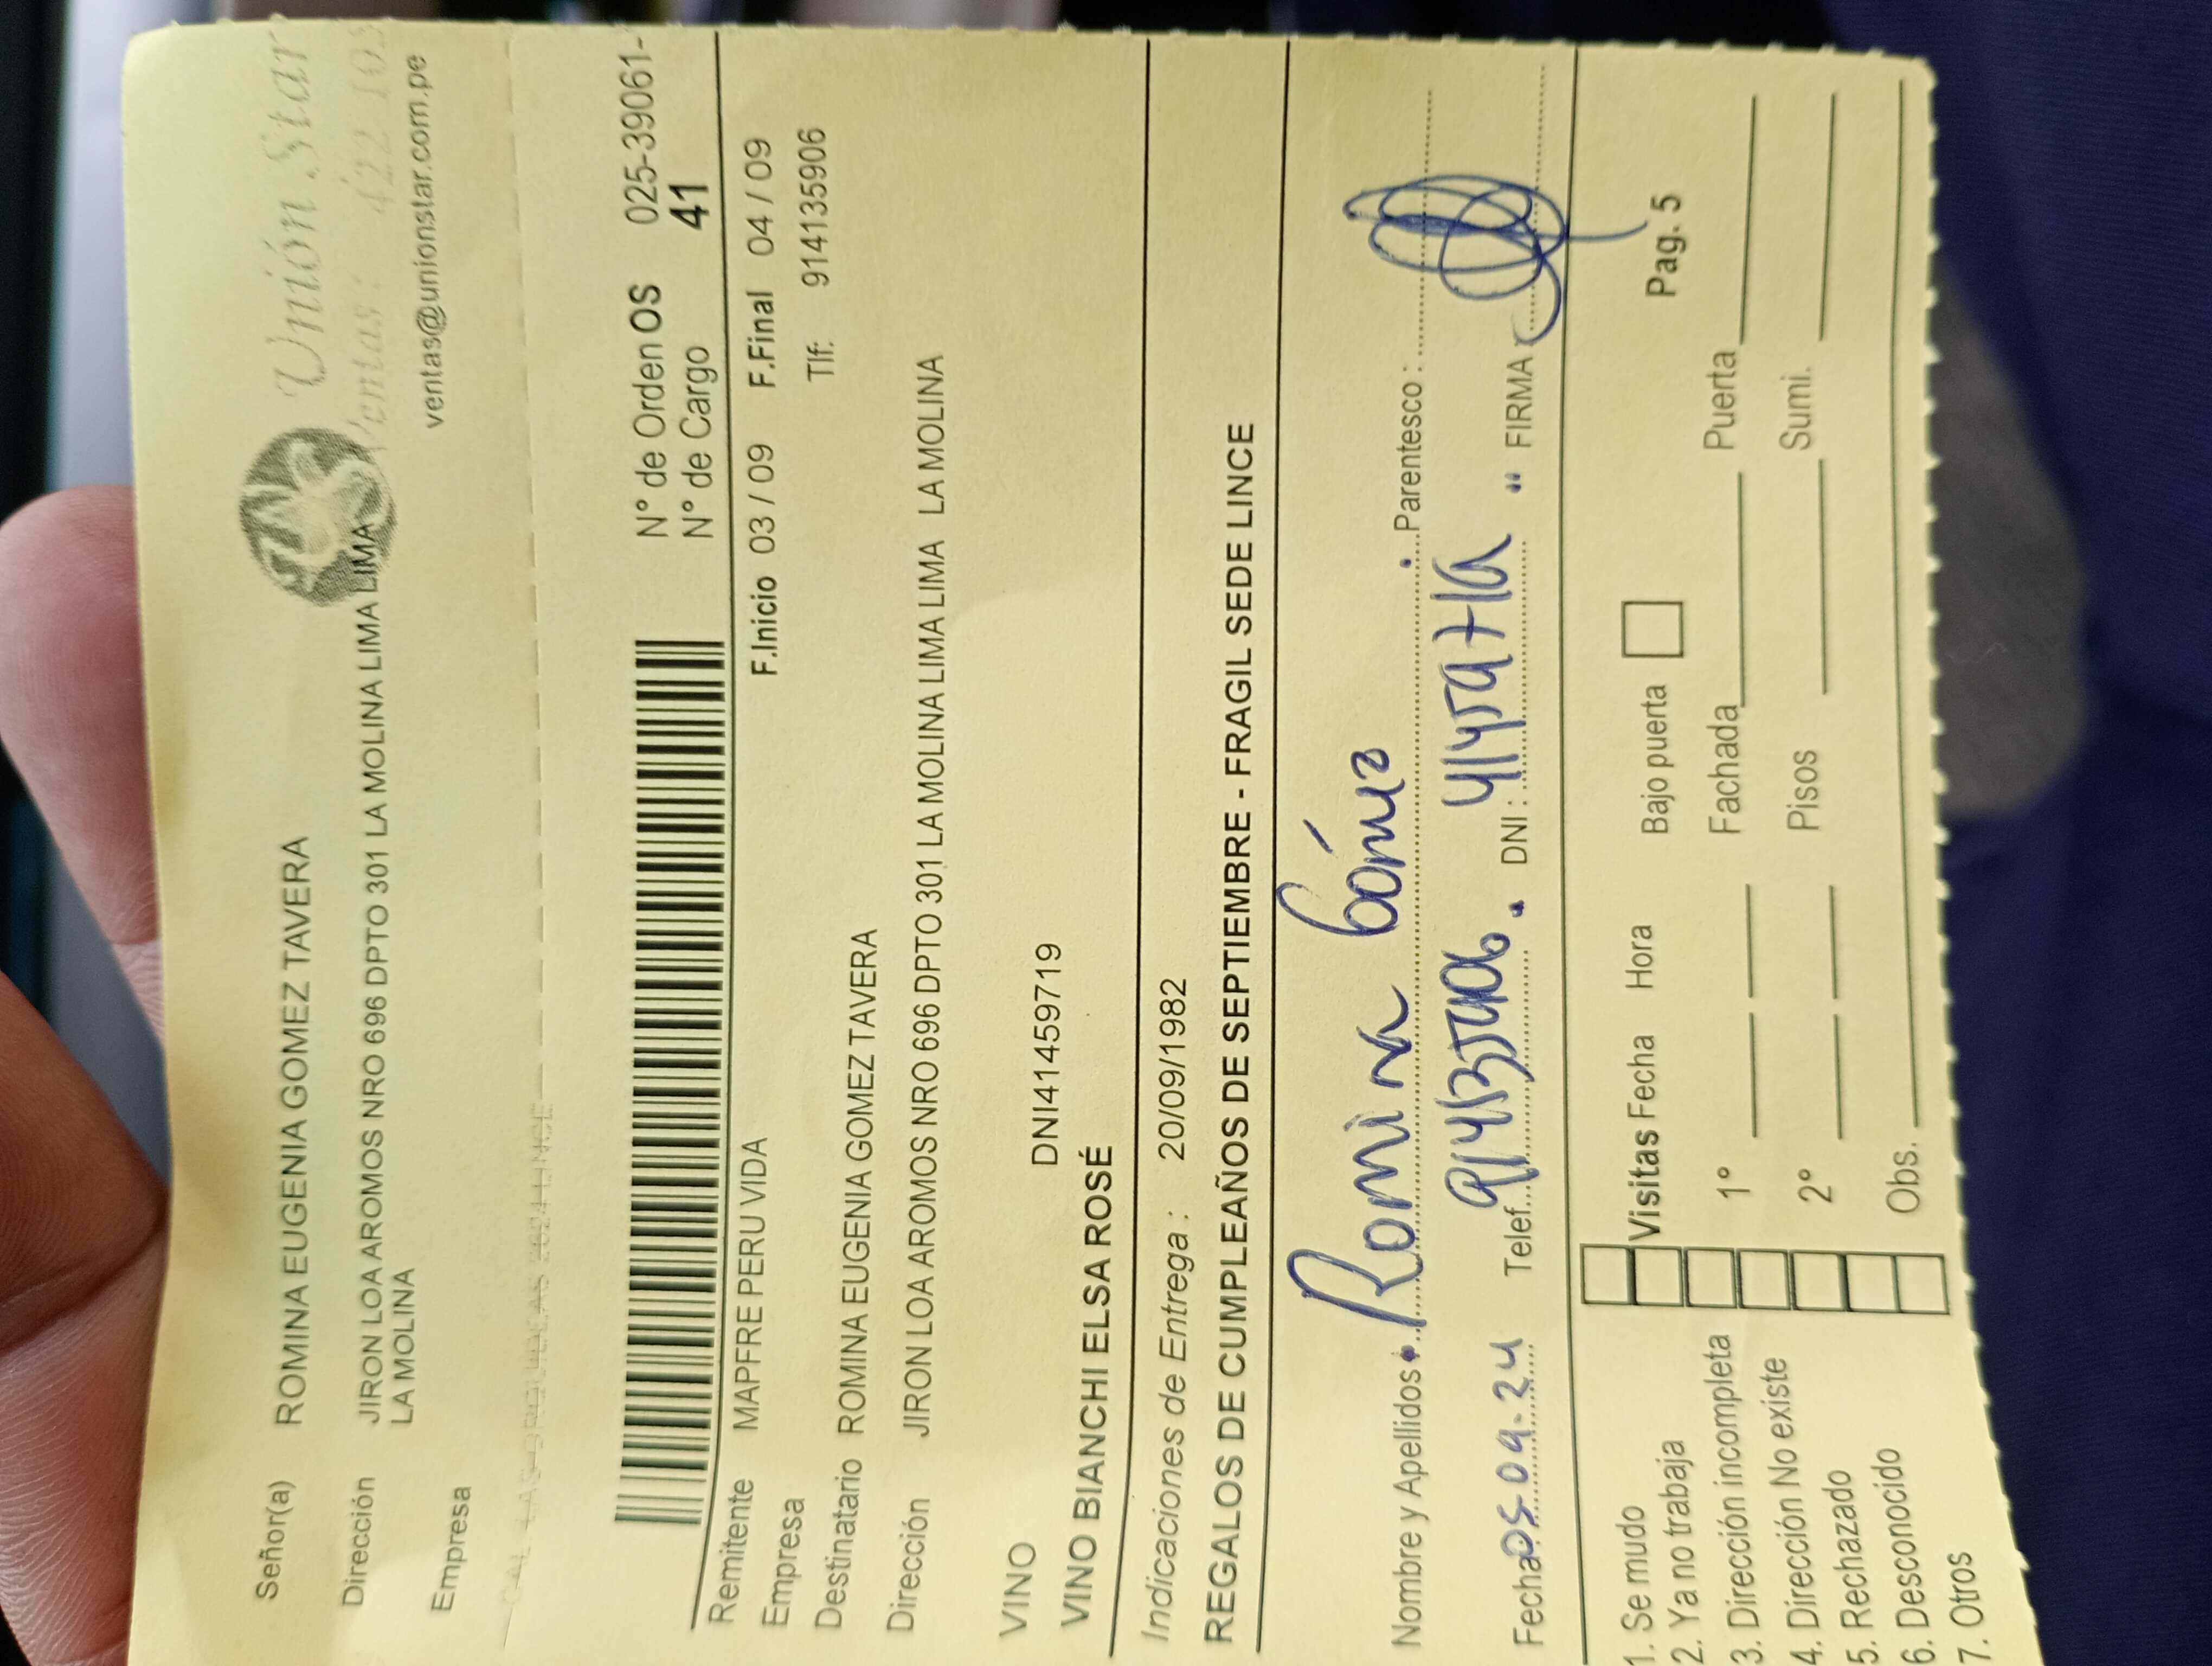 Unión Star
Ventas: 422 103
ventas@unionstar.com.pe
Señor(a) ROMINA EUGENIA GOMEZ TAVERA
Dirección JIRON LOA AROMOS NRO 696 DPTO 301 LA MOLINA LIMA LIMA
LA MOLINA
Empresa
N° de Orden OS 025-39061-
N° de Cargo 41
Remitente MAPFRE PERU VIDA F.Inicio 03 / 09 F.Final 04 / 09
Empresa Tlf: 914135906
Destinatario ROMINA EUGENIA GOMEZ TAVERA
Dirección JIRON LOA AROMOS NRO 696 DPTO 301 LA MOLINA LIMA LIMA LA MOLINA
VINO DNI41459719
VINO BIANCHI ELSA ROSÉ
Indicaciones de Entrega : 20/09/1982
REGALOS DE CUMPLEAÑOS DE SEPTIEMBRE - FRAGIL SEDE LINCE
Nombre y Apellidos Romina Gómez Parentesco :
Fecha 05-09-24 Telef. 914135906. DNI : 41459719 FIRMA
1. Se mudo Visitas Fecha Hora Bajo puerta Pag. 5
2. Ya no trabaja
3. Dirección incompleta 1° Fachada Puerta
4. Dirección No existe 2° Pisos Sumi.
5. Rechazado
6. Desconocido Obs.
7. Otros